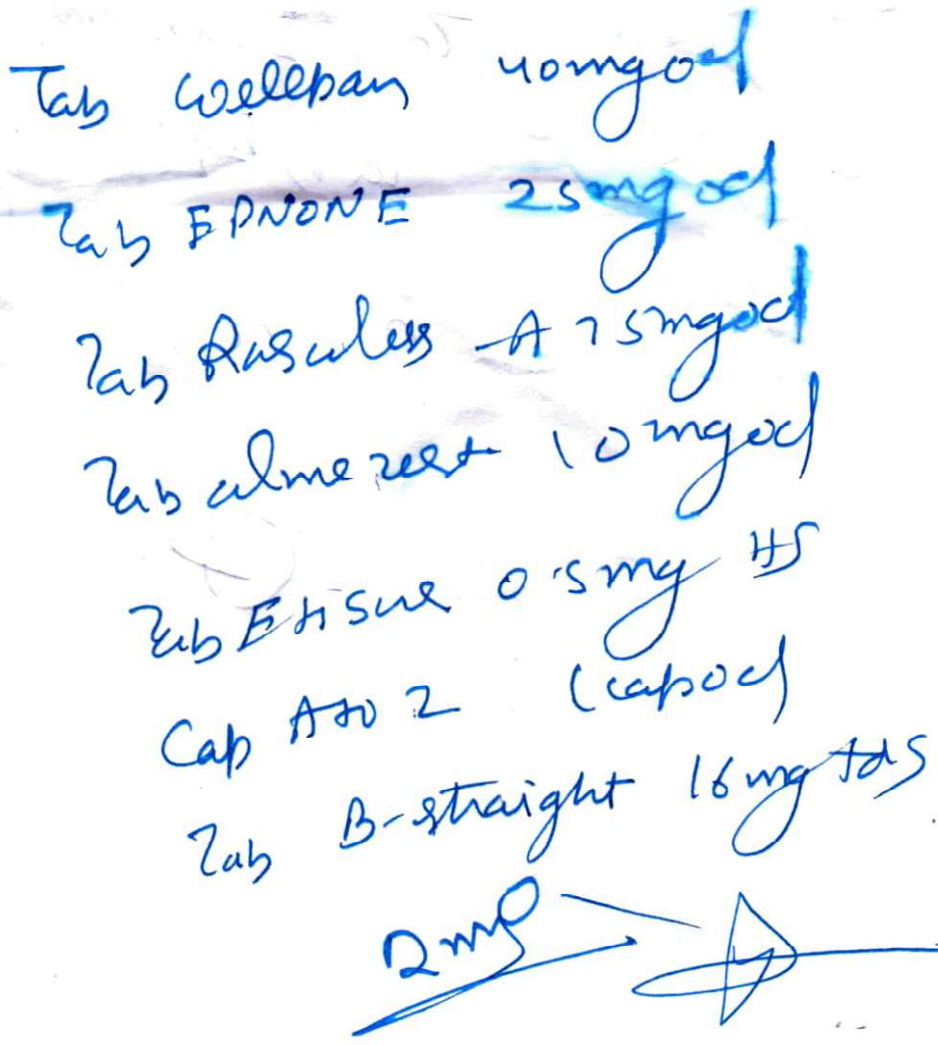 Tab Wellpan 40mg od
Tab EPNONE 25mg od
Tab Rasuless -A 75mg od
Tab almerest 10mg od
Tab Etisure 0.5mg HS
Cap A to Z 1cap od
Tab B-straight 16mg tds